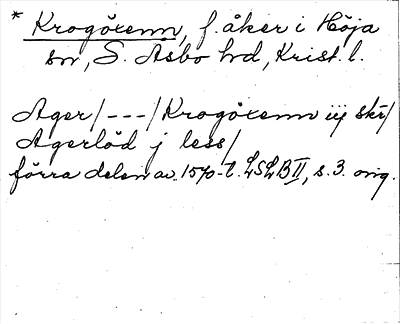 * Krogöxenn, f. åker i Höja
sn, S. Åsbo hd, Krist. l.
Ager/---/Krogöxenn iij skr/
Agerlöd j less/
förra delen av 1570-t. LSLB II, s. 3. orig.